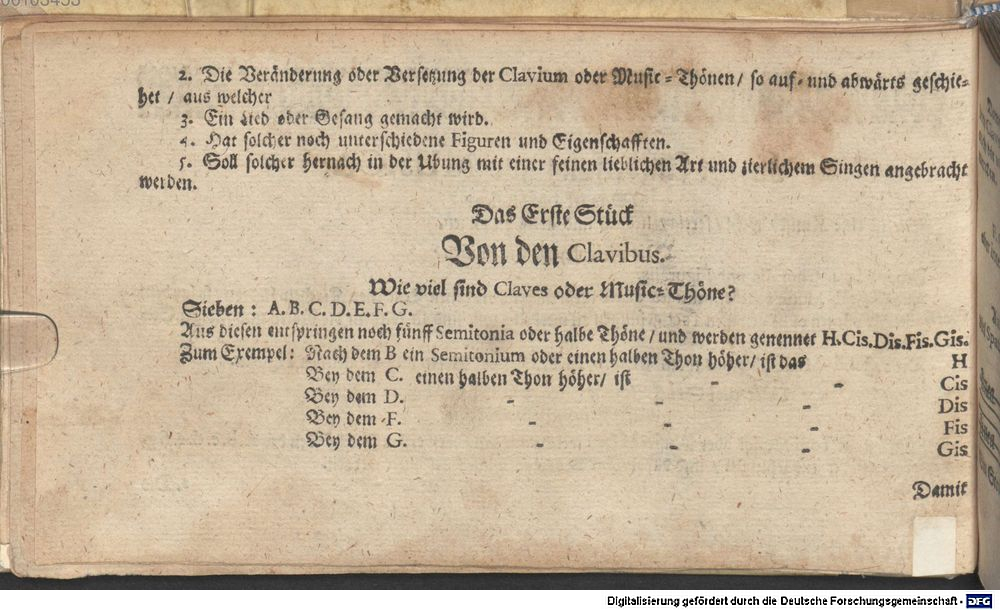 2. Die Veränderung oder Versetzung der Clavium oder Music-Thönen / so auf- und abwärts geschie-
het / aus welcher
3. Ein Lied oder Gesang gemacht wird.
4. Hat solcher noch unterschiedene Figuren und Eigenschafften.
5. Soll solcher hernach in der Übung mit einer feinen lieblichen Art und zierlichem Singen angebracht
werden.
Das Erste Stück
Von den Clavibus.
Wie viel sind Claves oder Music-Thöne?
Sieben: A. B. C. D. E. F. G.
Aus diesen entspringen noch fünff Semitonia oder halbe Thöne / und werden genennet H. Cis. Dis. Fis. Gis.
Zum Exempel: Nach dem B ein Semitonium oder einen halben Thon höher / ist das H
Bey dem C. einen halben Thon höher / ist - - Cis
Bey dem D. - - - Dis
Bey dem F. - - - Fis
Bey dem G. - - - Gis
Damit
Digitalisierung gefördert durch die Deutsche Forschungsgemeinschaft - DFG